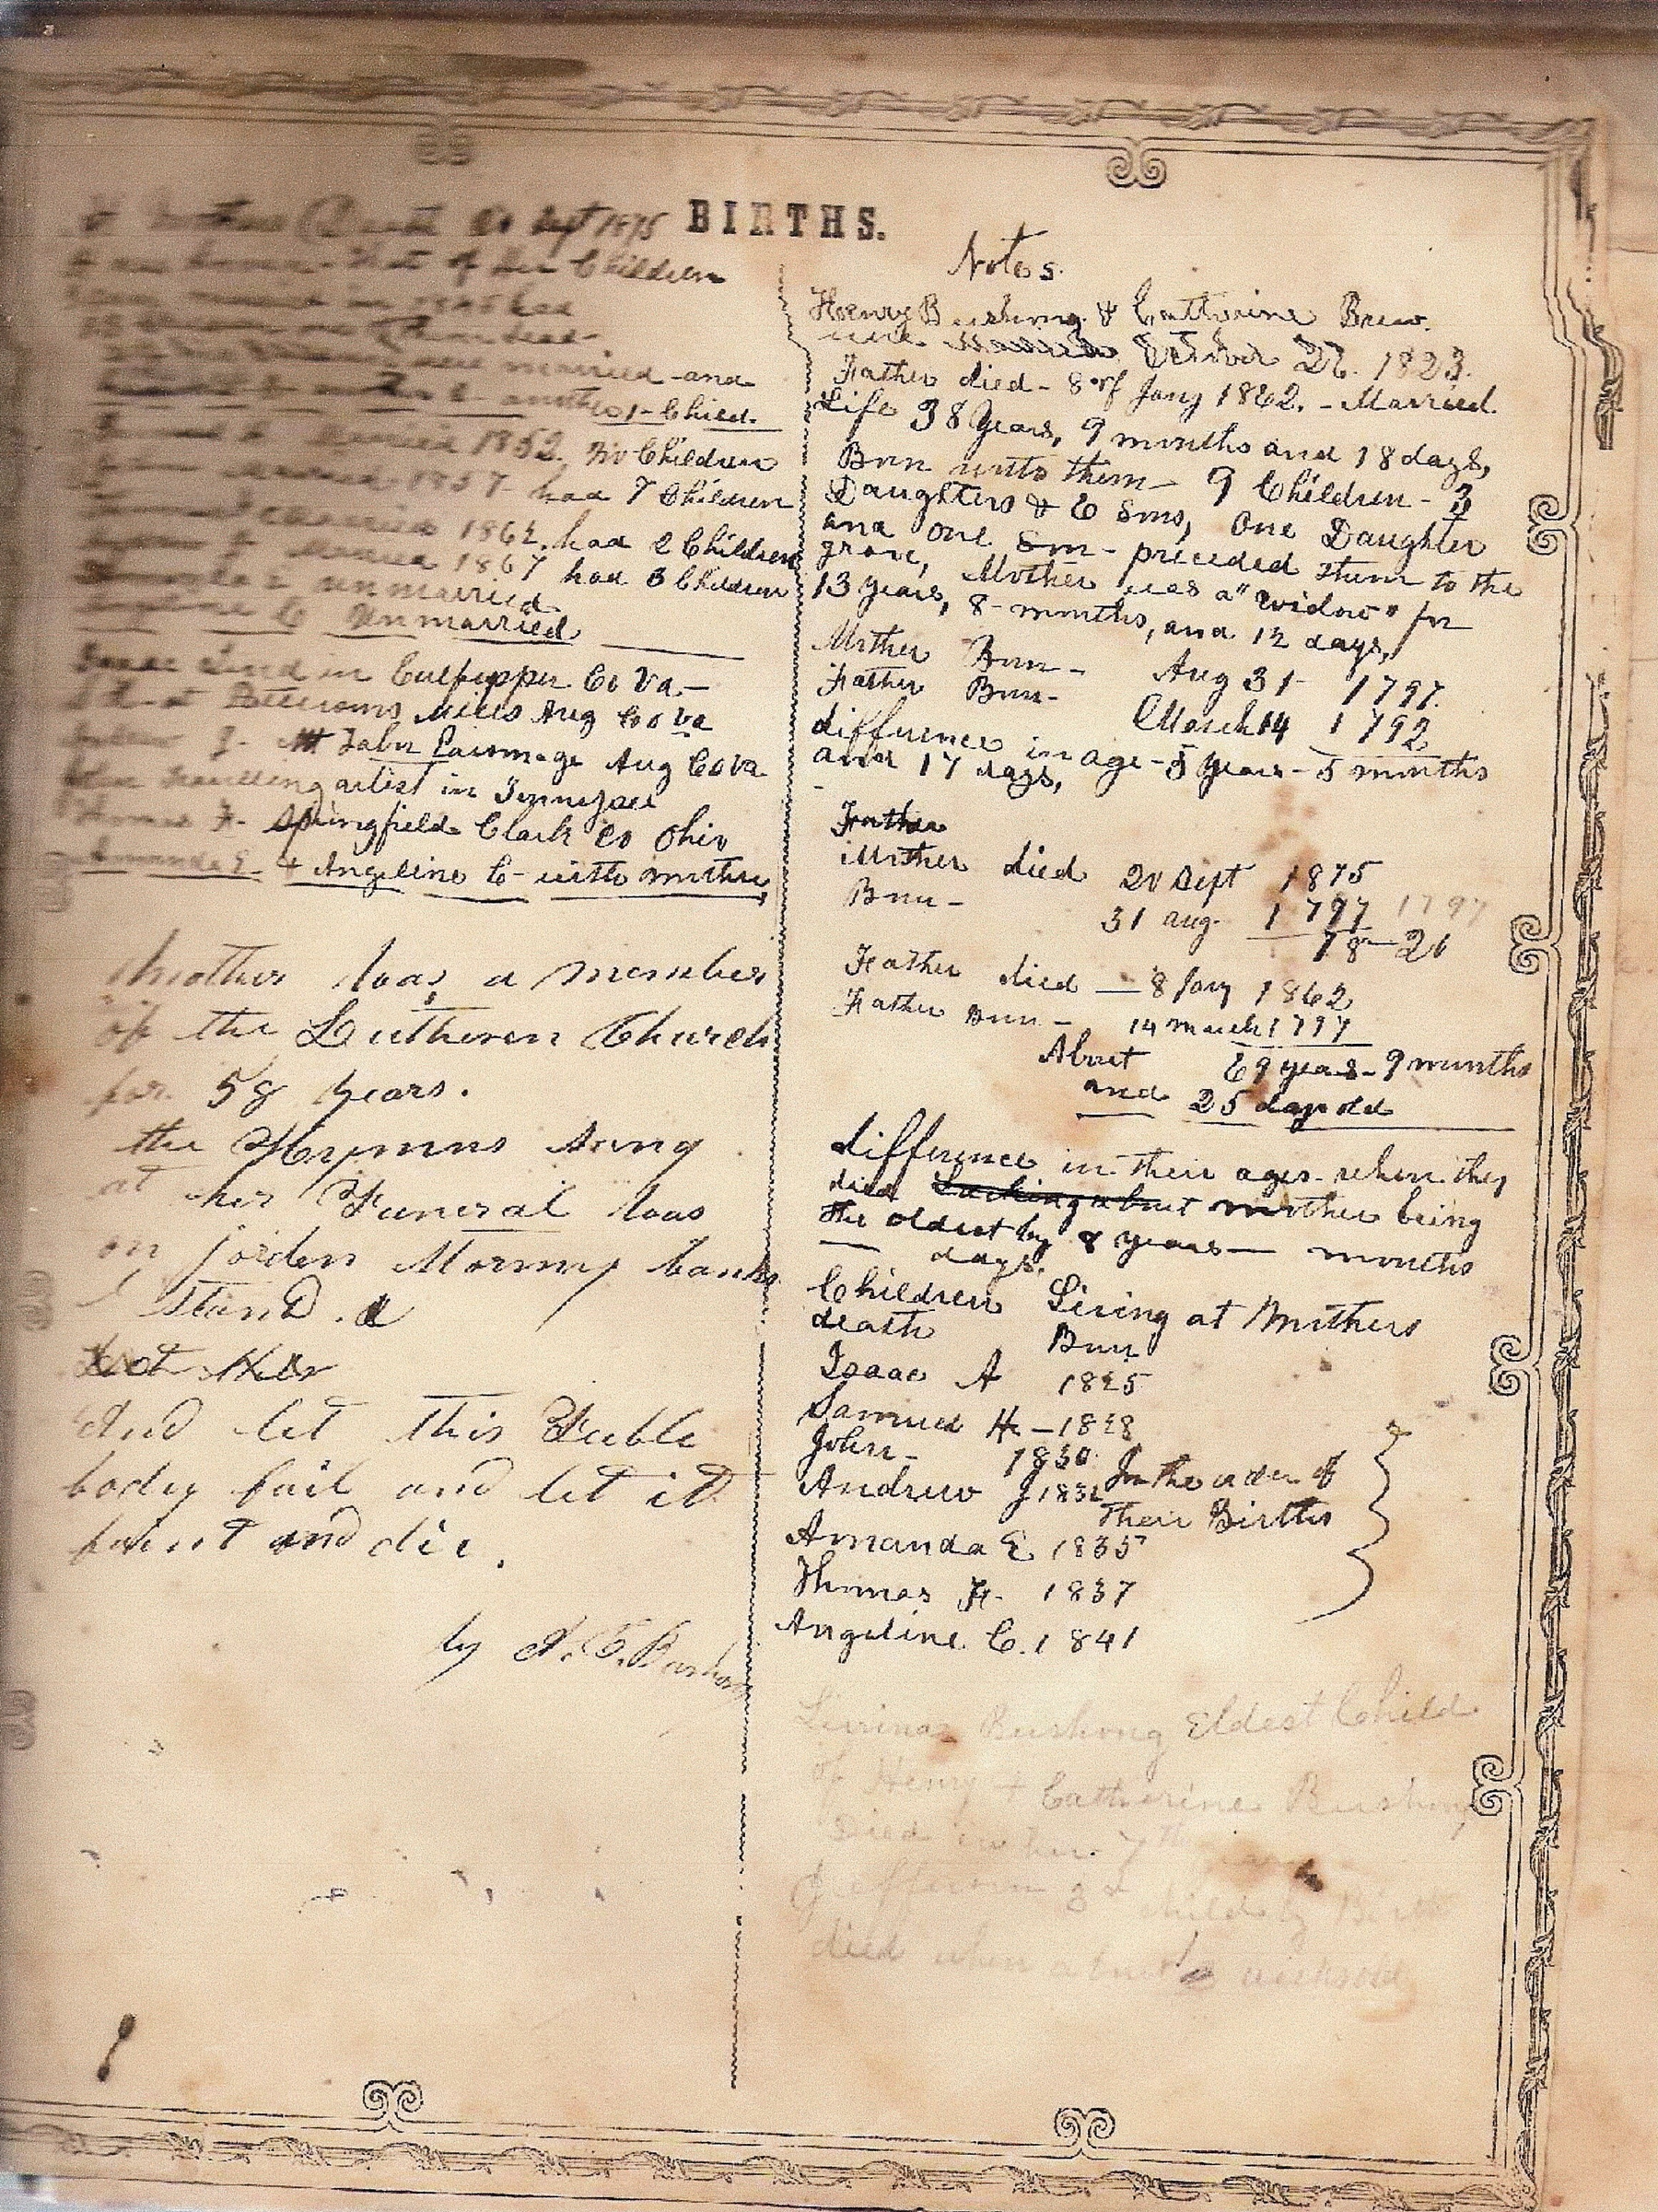 BIRTHS.
Sept 1875
that of her Children
married in 1845 had
were married and
another 1 - Child.
Married 1852, No Children
Married 1857 - had 7 Children
Married 1862. had 2 Children
Married 1867 had 3 Children
unmarried
Unmarried
Lived in Culpepper Co Va -
Mills Aug Co Va
J. Mt Tabor Parsonage Aug Co Va
travelling artist in Tennessee
Thomas F. Springfield Clark Co Ohio
Amanda E. + Angeline C - with mother,
Mother was a member
of the Lutheren Church
for 58 years.
the Hymns Sung
at her Funeral was
on jorden Stormy banks
I Stand. &
And let this Feeble
body fail and let it
faint and die.
by A. E. Bushong
Notes.
Henry Bushong & Catherine Brew.
were Married October 22. 1823.
Father died - 8 of Jany 1862. - Married.
Life 38 Years, 9 months and 18 days,
Born unto them - 9 Children - 3
Daughters & 6 Sons, One Daughter
and one Son - preceded them to the
grave, Mother was a "widow" for
13 years, 8 - months, and 12 days,
Mother Born - Aug 31 - 1797.
Father Born - March 14 1792
difference in age - 5 years - 5 months
and 17 days,
Father
Mother died 20 Sept 1875
Born - 31 aug. 1797 1797
78 - 20
Father died - 8 Jany 1862
Father Born - 14 march 1797
About 69 years - 9 months
and 25 days old
difference in their ages when they
died Lacking about mother being
the oldest by 8 years - months
days.
Children Living at Mothers
death Born
Isaac A 1825
Samuel H - 1828
John - 1830
Andrew J 1832 In the order of
Their Births
Amanda E 1835
Thomas F. 1837
Angeline C. 1841
Bushong Eldest Child
of Henry + Catherine Bushong
died in her 7th
Jefferson 3d child by Birth
died when about weeks old